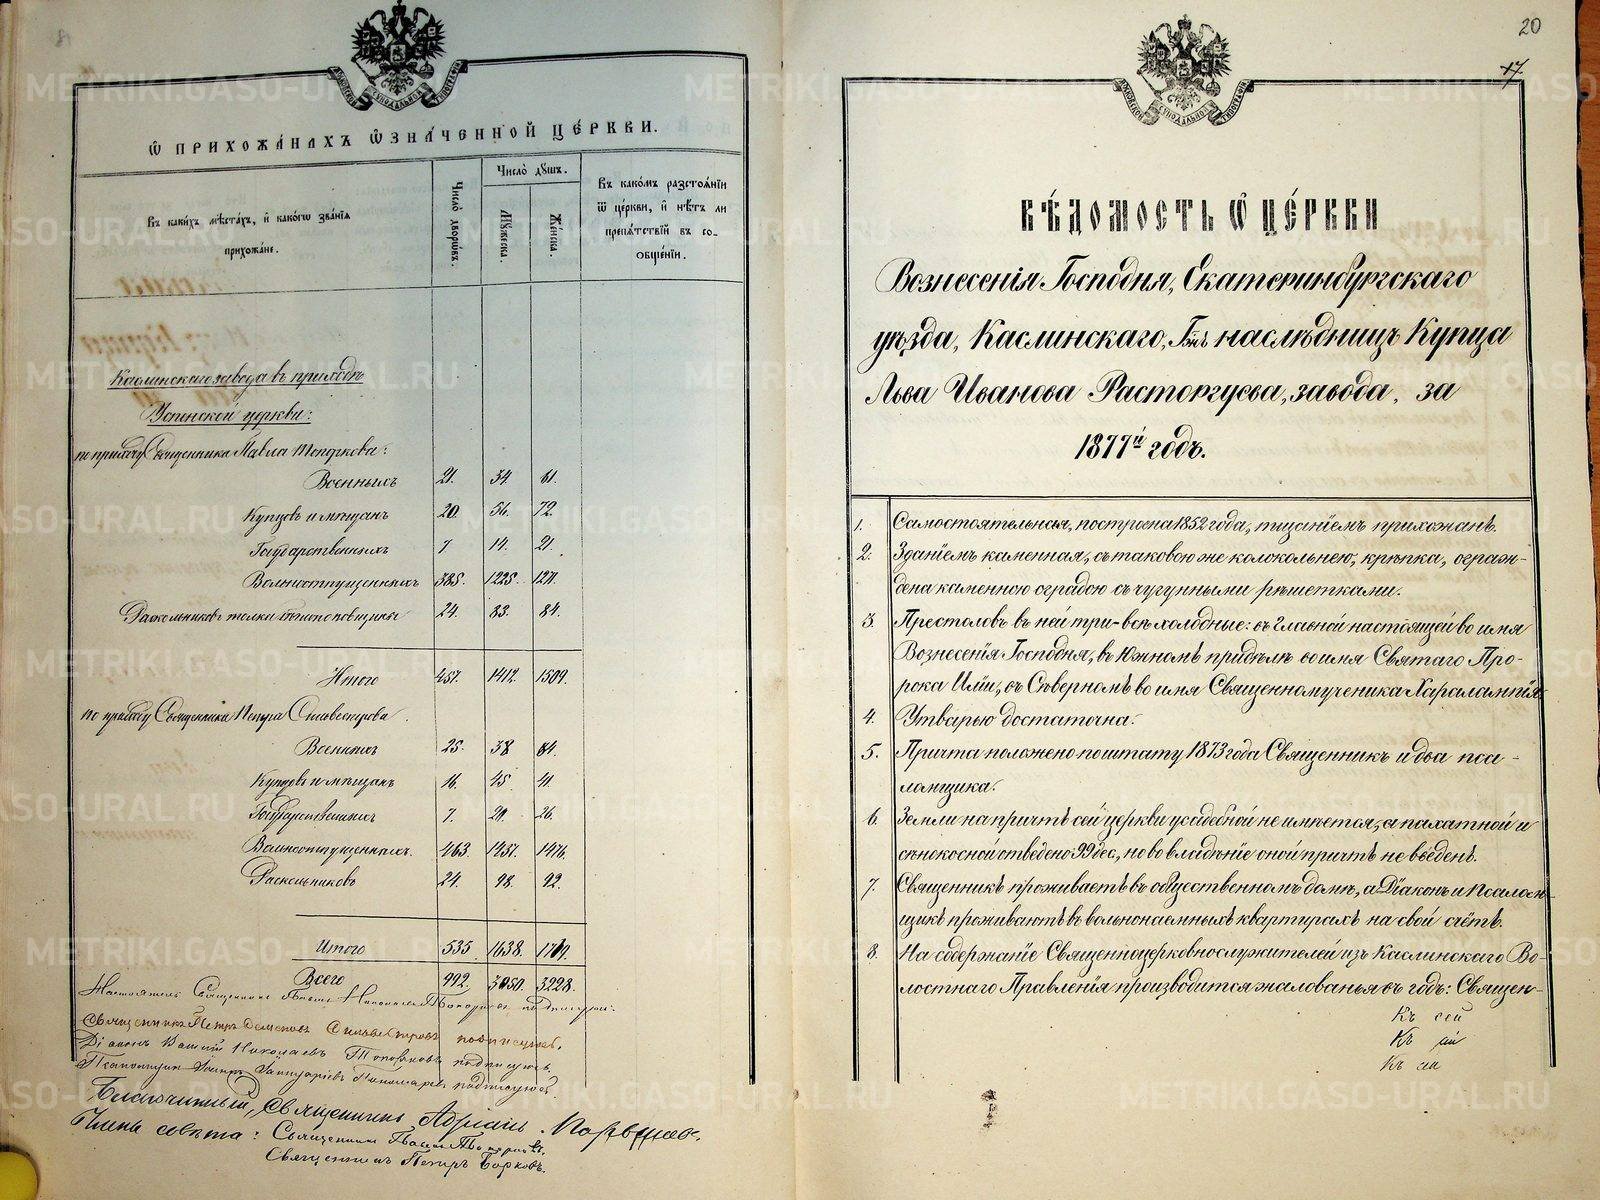 20
17.
Ѡ ПРИХОЖА́НАХЪ ѠЗНА́ЧЕННОЙ ЦЕ́РКВИ.
Въ какихъ мѣстахъ, и какогѡ зва́нїѧ
прихожа́не.
Число̀ дворѡ́въ.
Число̀ дꙋшъ.
Мꙋ́жеска.
Же́нска.
Въ како́мъ разстоѧ́нїи
ѿ це́ркви, и нѣ́тъ ли
препѧ́тствїй въ со-
общє́нїи.
Каслинскаго завода въ приходѣ
Успенской церкви:
по приходу Священника Павла Топоркова:
Военныхъ 21. 34. 61.
Купцовъ и мѣщанъ 20. 56. 72.
Государственныхъ 7 14. 21.
Вольноотпущенныхъ 385. 1225. 1271.
Раскольниковъ толка 24. 83. 84.
Итого 457. 1412. 1509.
по приходу Священника Петра Сильвестрова.
Военныхъ 25. 38 84.
Купцовъ и мѣщанъ 16. 45 41.
Государственныхъ 7. 26.
Вольноотпущенныхъ. 463. 1457. 1476.
Раскольниковъ 24. 98. 92.
Итого 535 1638.
Всего 992. 3050. 3228.
Настоятель Священникъ Павелъ
Священникъ Петръ Сильвестровъ подписуюсь.
Дїаконъ Николаевъ Топорковъ подписуюсь.
Псаломщикъ Пономаревъ подписуюсь.
Благочинный, Священникъ Адріанъ
Члены совѣта: Священникъ Павелъ Топорковъ.
Священникъ Петръ
ВѢ́ДОМОСТЬ Ѡ ЦЕ́РКВИ
Вознесенія Господня, Екатеринбургскаго
уѣзда, Каслинскаго, наслѣдницъ Купца
Льва Иванова Расторгуева, завода, за
1877й годъ.
1. Самостоятельная, построена 1852 года, тщаніемъ прихожанъ.
2. Зданіемъ каменная, съ таковою же колокольнею, крѣпка, ограж-
дена каменною оградою съ чугунными рѣшетками.
3. Престоловъ въ ней три-всѣ холодные: въ Главной настоящей во имя
Вознесенія Господня, въ Южномъ придѣлѣ во имя Святаго Про-
рока Иліи, въ Сѣверномъ во имя Священномученика Харалампія
4. Утварью достаточна.
5. Причта положено по штату 1873 года Священникъ и два пса-
ломщика.
6. Земли на причтъ сей церкви усадебной не имѣется, а пахатной и
сѣнокосной отведено 99 дес., но во владѣніе оной причтъ не введенъ.
7. Священникъ проживаетъ въ общественномъ домѣ, а Діаконъ и Псалом-
щикъ проживаютъ въ вольнонаемныхъ квартирахъ на свой счётъ.
8. На содержаніе Священноцерковнослужителей изъ Каслинскаго Во-
лостнаго Правленія производится жалованья въ годъ: Священ-
Къ сей
Къ
Къ